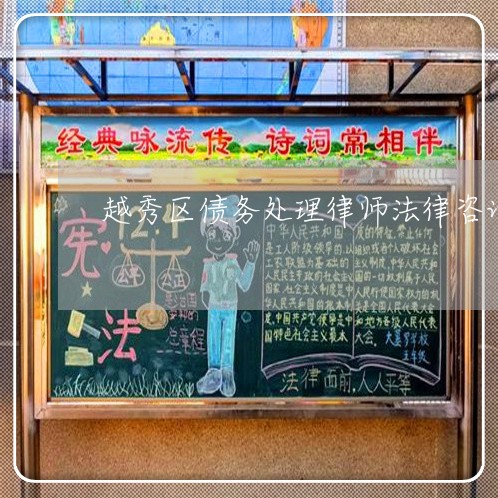 经典咏流传 诗词常相伴
越秀区债务处理律师法律咨
宪
法
12.4
公平
公正
总章程
中华人民共和国
是工人阶级领导的,以
工农联盟为基础的
人民民主专政的社会主义
国家.社会主义制度是中
华人民共和国的根本制
度.中国共产党领导是中
国特色社会主义最本
质的特征.禁止任何
组织或者个人破坏社会
主义制度.中华人民共和
国的一切权利属于人民.
人民行使国家权力的机
关是全国人民代表大会
和地方各级人民代表
大会.
学校
五年级
法律面前,人人平等